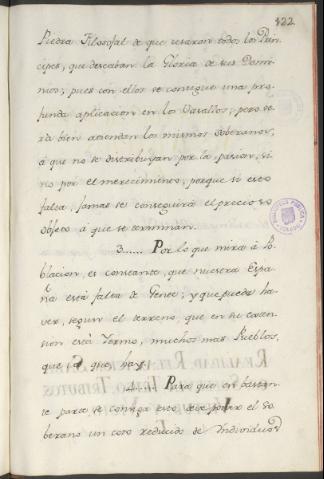 122
Piedra Filosofal de que usaron todos los Prin-
cipes, que deseaban la Gloria de sus Domi-
nios; pues con ellos se consigue una pro-
funda aplicacion en los Vasallos; pero se-
rá bien atiendan los mismos Soberanos,
á que no se distribuyan por la pasion, si-
no por el merecimiento; porque si esto
falta, jamas se conseguirá el precioso
objeto á que se terminan.
3...... Por lo que mira á Po-
blacion, es constante, que nuestra Espa-
ña está falta de Gente; y que puede ha-
ver, segun el terreno, que en su exten-
sion está Yermo, muchos mas Pueblos,
que los que hay.
4...... Para que en bastan-
te parte se consiga esto debe poner el So-
berano un coto reducido de Individuos
BIBLIOTECA PUBLICA
TOLEDO